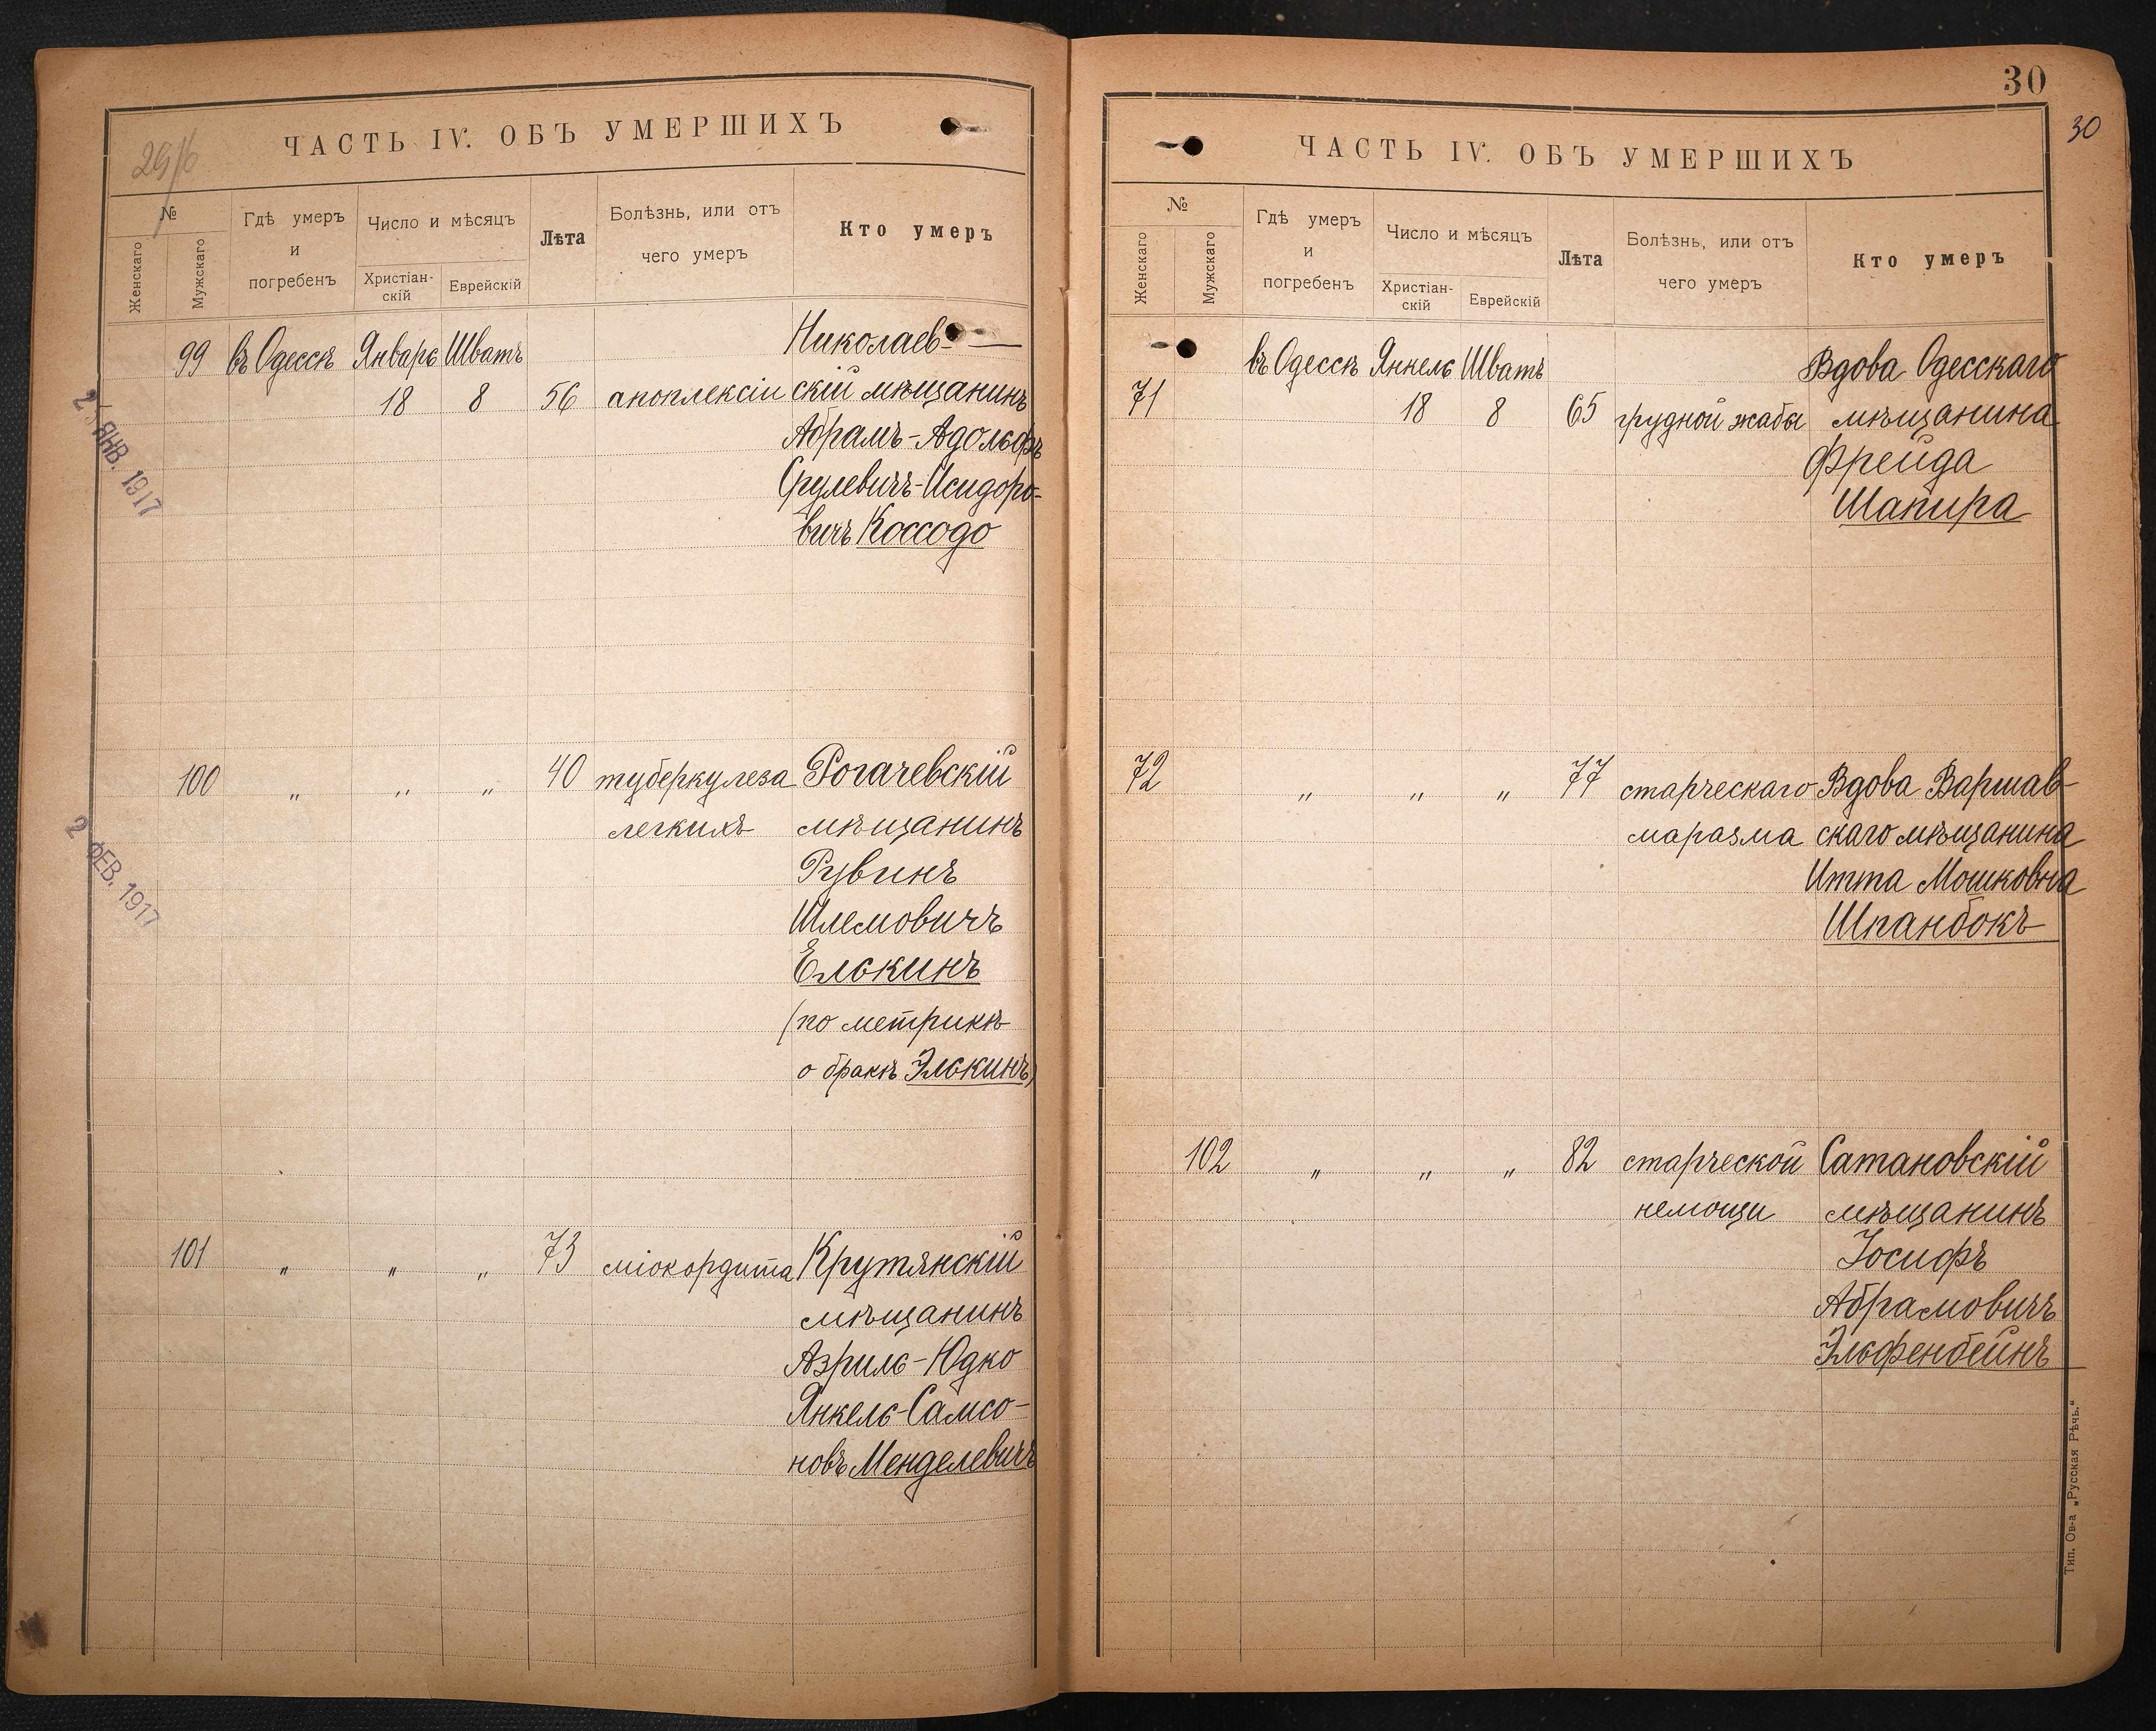 29/б
ЧАСТЬ IV. ОБЪ УМЕРШИХЪ
№
Женскаго
Мужскаго
Гдѣ умеръ
и
погребенъ
Число и мѣсяцъ
Христіан-
скій
Еврейскій
Лѣта
Болѣзнь, или отъ
чего умеръ
Кто умеръ
99 въ Одессѣ Январь Шватъ Николаев-
18 8 56 апоплексіи скій мѣщанинъ
Абрамъ-Адольфъ
Срулевичъ-Исидоро-
вичъ Коссодо
ЯНВ. 1917
100 „ „ „ 40 туберкулеза Рогачевскій
легкихъ мѣщанинъ
Рувинъ
Шлемовичъ
Елькинъ
(по метрикѣ
о бракѣ Элькинъ)
2 ФЕВ. 1917
101 „ „ „ 73 міокордита Крутянскій
мѣщанинъ
Азриль-Юдко
Янкель-Самсо-
новъ Менделевичъ
30
30
ЧАСТЬ IV. ОБЪ УМЕРШИХЪ
№
Женскаго
Мужскаго
Гдѣ умеръ
и
погребенъ
Число и мѣсяцъ
Христіан-
скій
Еврейскій
Лѣта
Болѣзнь, или отъ
чего умеръ
Кто умеръ
въ Одессѣ Янкель Шватъ Вдова Одесскаго
71 18 8 65 грудной жабы мѣщанина
Фрейда
Шапира
72 „ „ „ 77 старческаго Вдова Варшав-
маразма скаго мѣщанина
Итта Мошковна
Шпанбокъ
102 „ „ „ 82 старческой Сатановскій
немощи мѣщанинъ
Іосифъ
Абрамовичъ
Эльфенбейнъ
Тип. Ов-а „Русская Рѣчь."